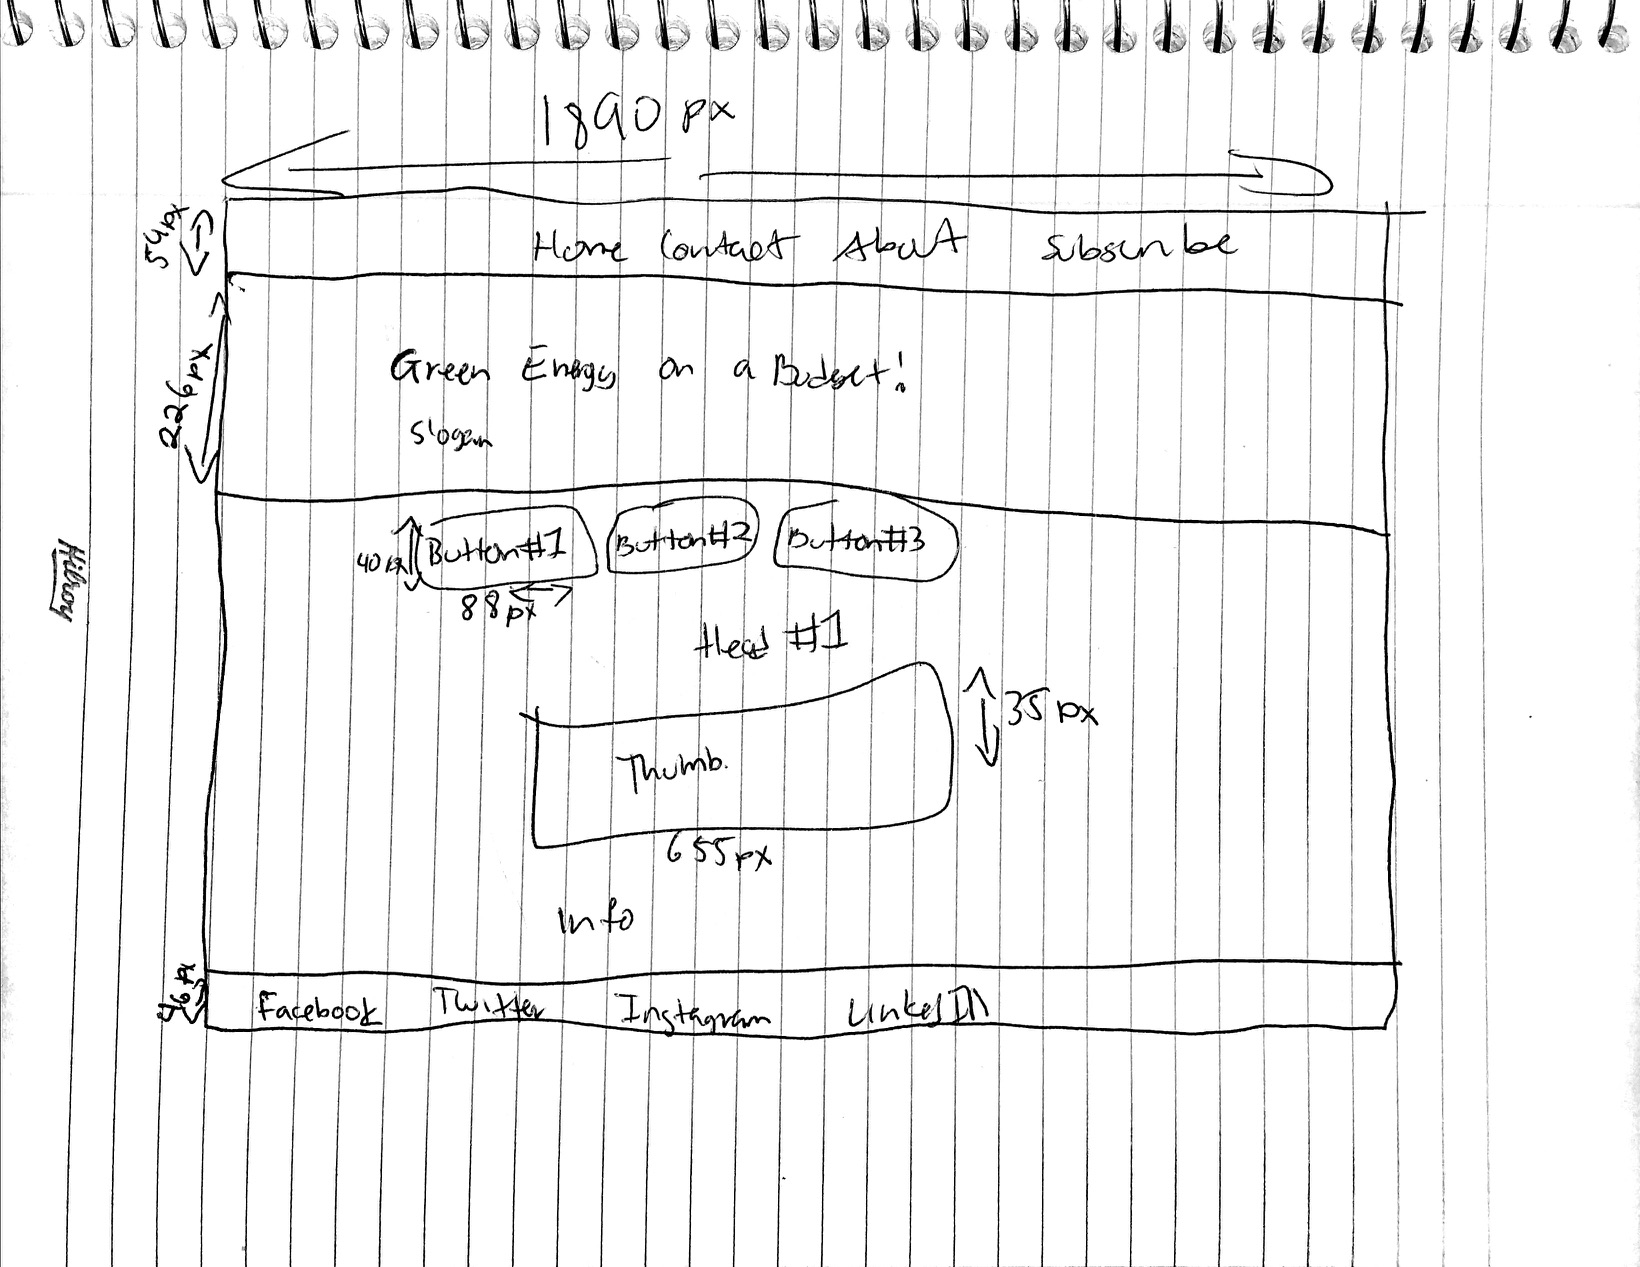 1890 px
54px
Home Contact About Subscribe
226px
Green Energy on a Budget!
Slogan
Button#1 Button#2 Button#3
40px
88px
Head #1
35px
Thumb.
655px
Info
46px
Facebook Twitter Instagram LinkedIn
Hilroy